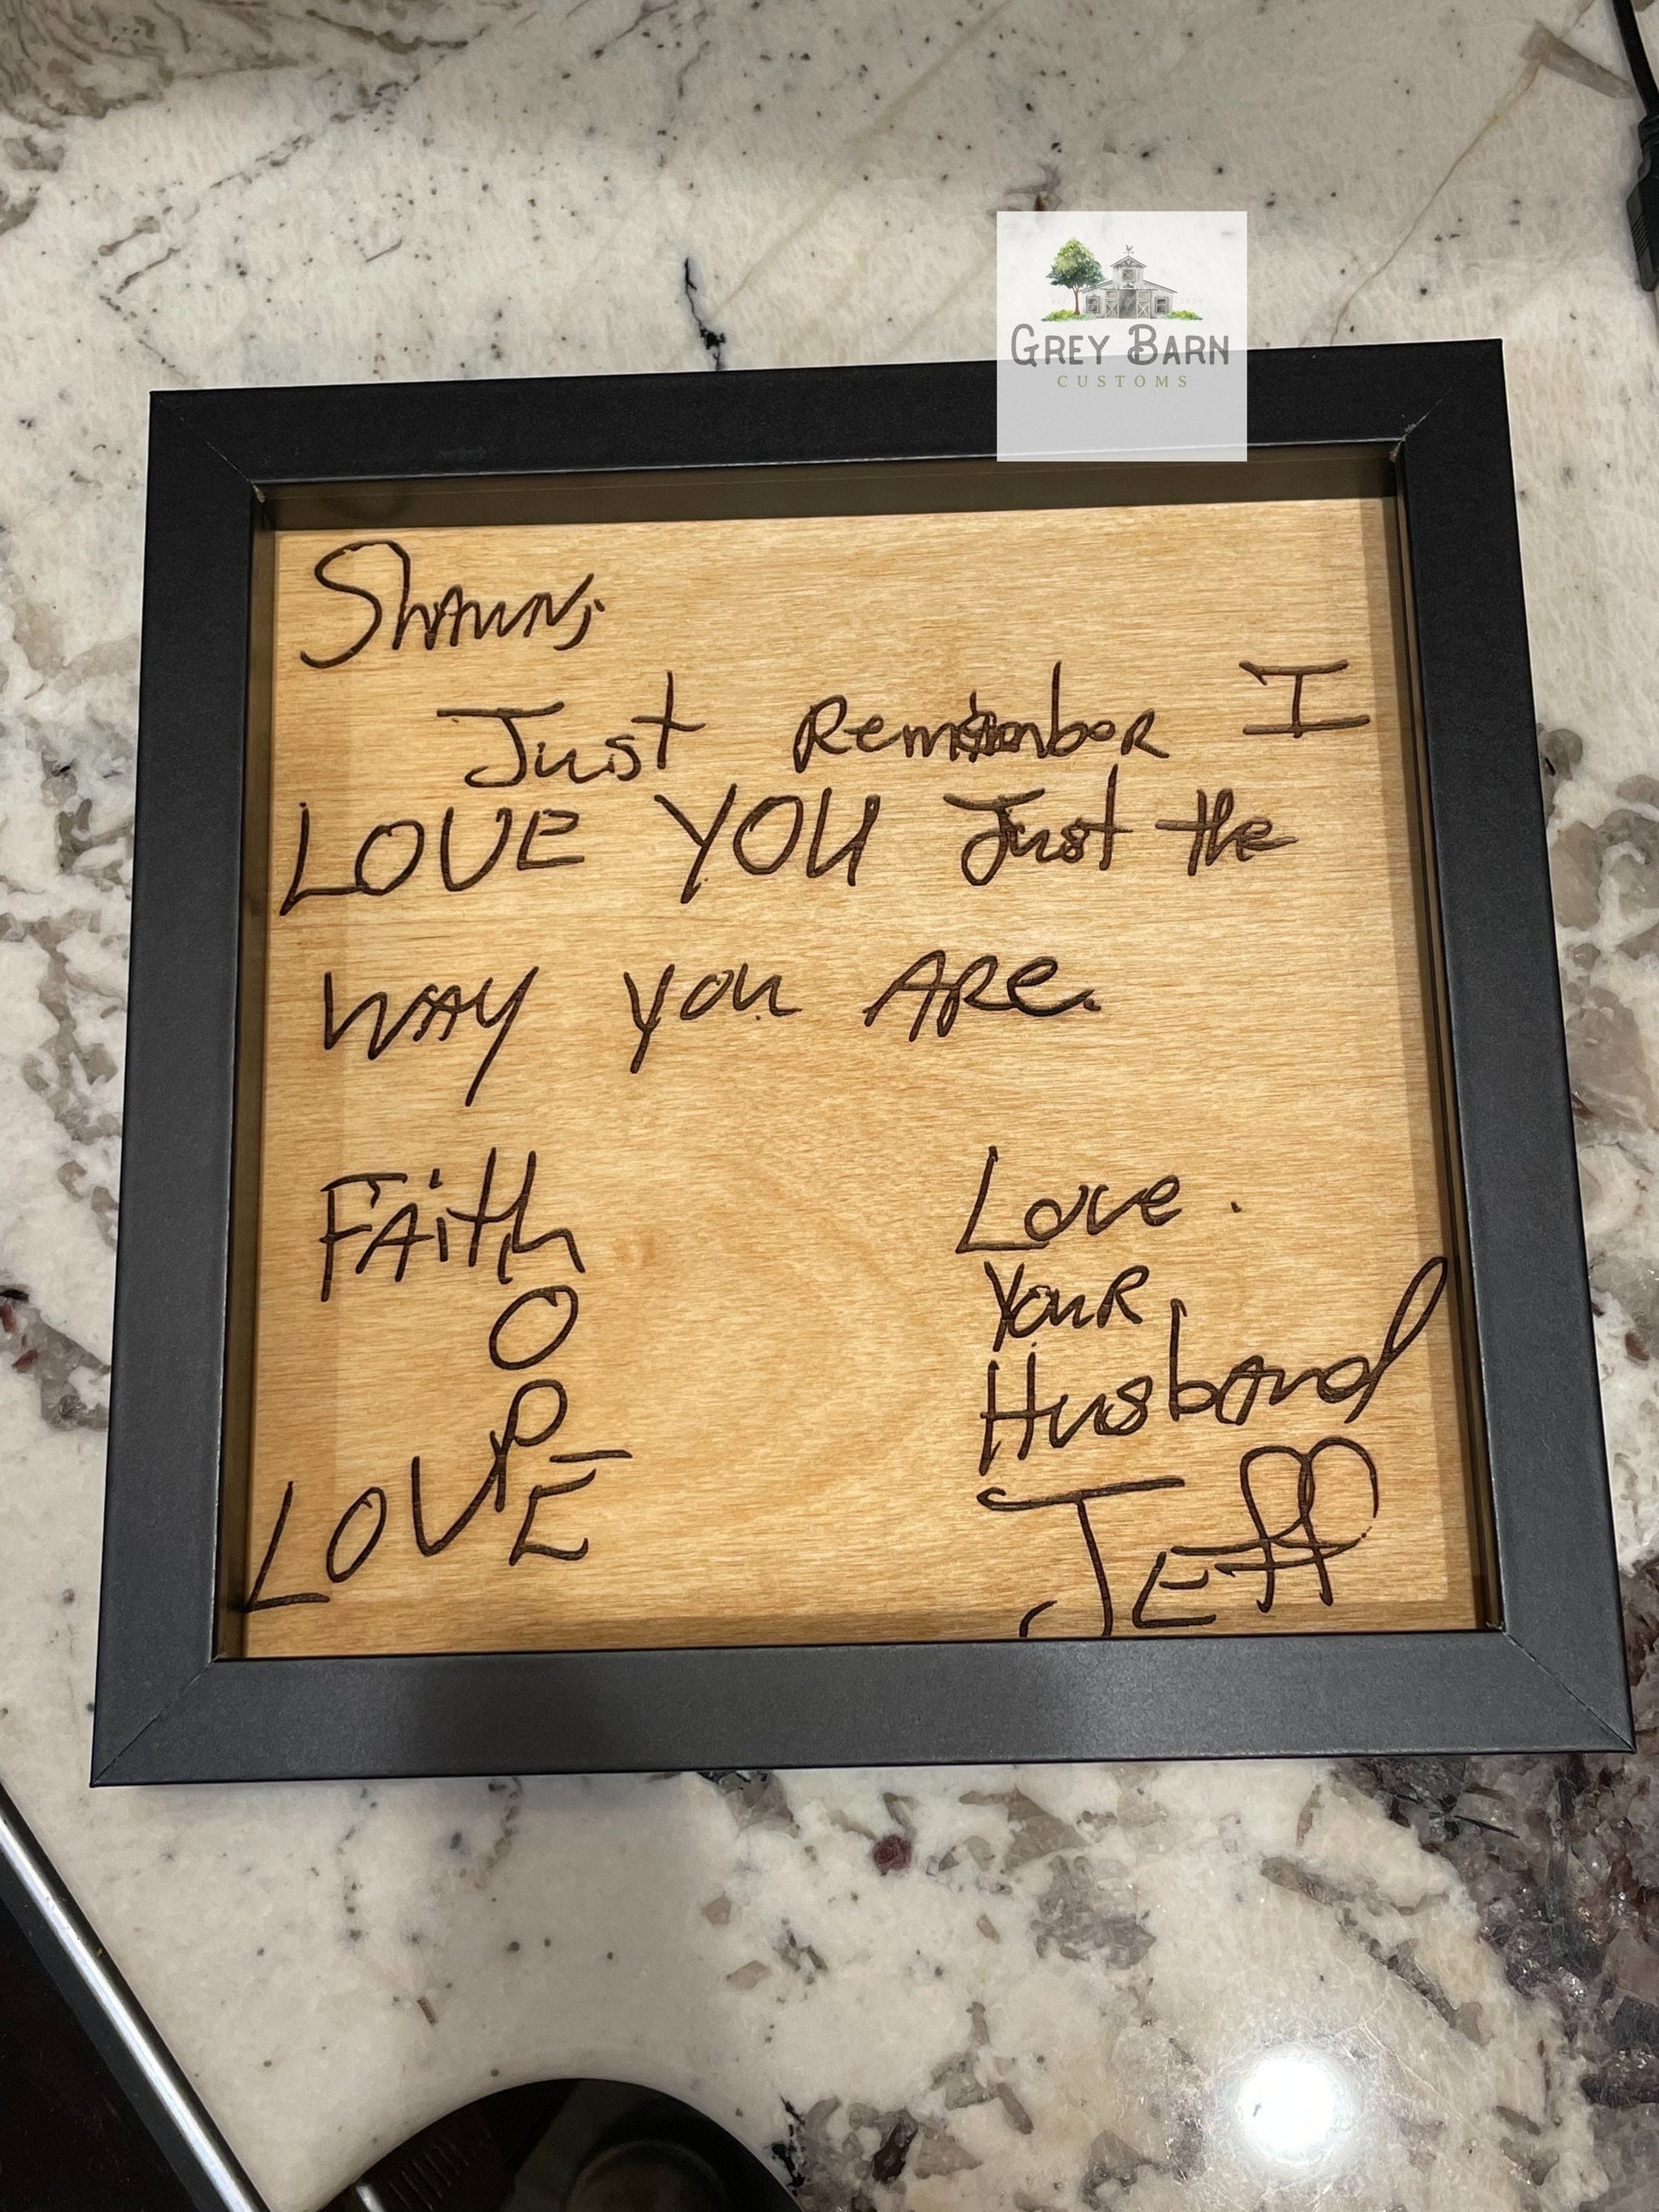 GREY BARN
CUSTOMS
Shawn,
Just Remember I
LOVE YOU Just the
WAY you ARe.
FAith
O
P
LOVE
Love.
YouR
HusbAnd
JEff